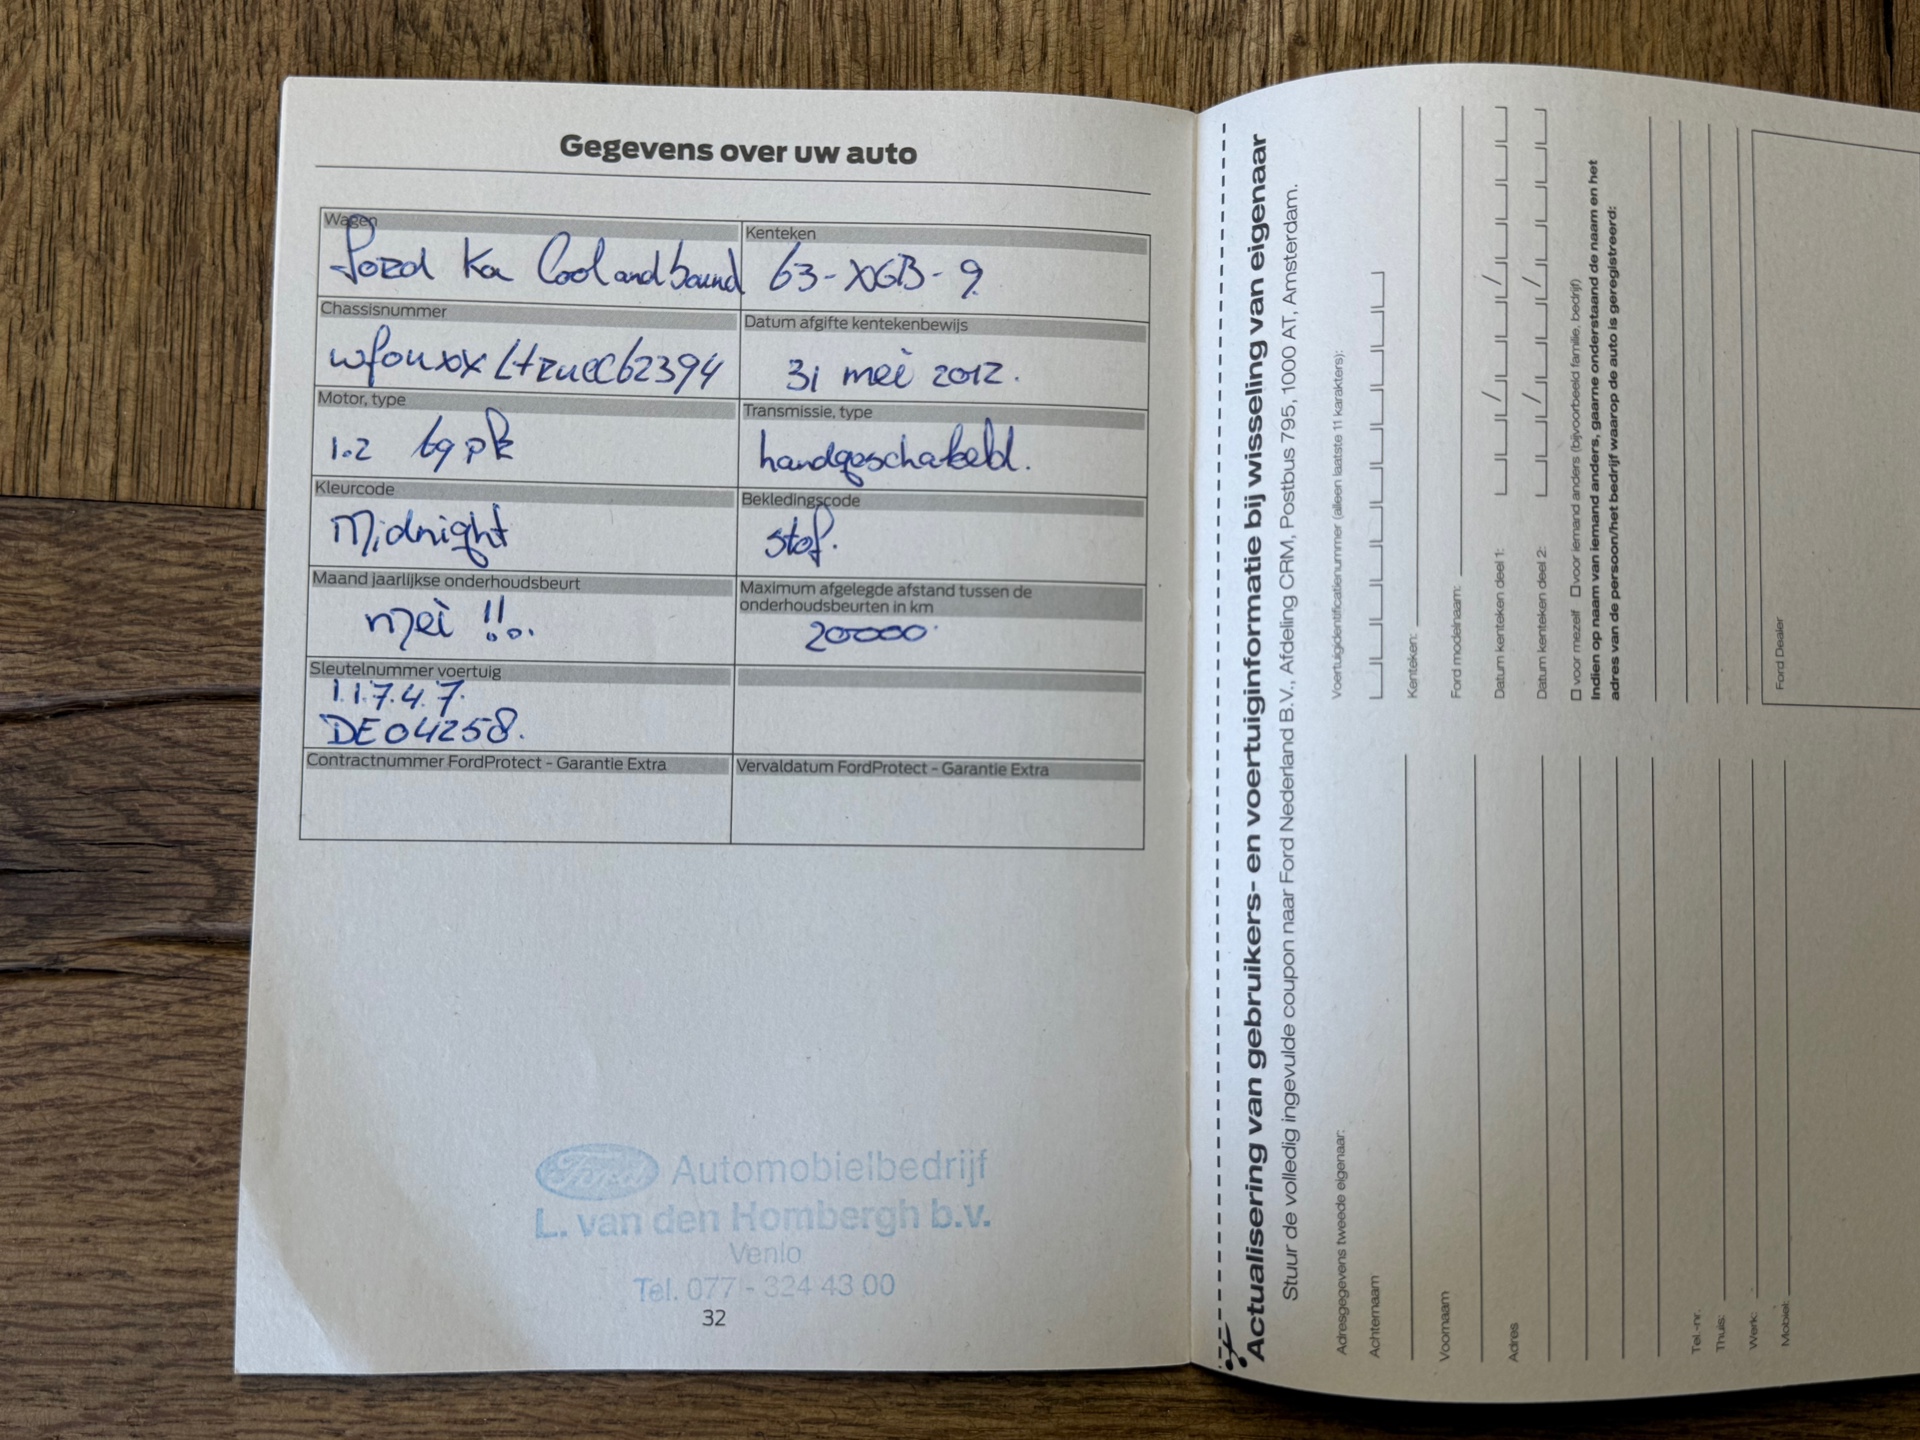 Gegevens over uw auto
Wagen
Ford Ka Cool and Sound
Kenteken
63-XGB-9
Chassisnummer
wfouxxLtzuCC62394
Datum afgifte kentekenbewijs
31 mei 2012.
Motor, type
1.2 69 pk
Transmissie, type
handgeschakeld.
Kleurcode
Midnight
Bekledingscode
stof.
Maand jaarlijkse onderhoudsbeurt
mei !!..
Maximum afgelegde afstand tussen de
onderhoudsbeurten in km
20000
Sleutelnummer voertuig
1.1.7.4.7.
DE04258.
Contractnummer FordProtect - Garantie Extra
Vervaldatum FordProtect - Garantie Extra
Ford Automobielbedrijf
L. van den Hombergh b.v.
Venlo
Tel. 077 - 324 43 00
32
Actualisering van gebruikers- en voertuiginformatie bij wisseling van eigenaar
Stuur de volledig ingevulde coupon naar Ford Nederland B.V., Afdeling CRM, Postbus 795, 1000 AT, Amsterdam.
Adresgegevens tweede eigenaar:
Achternaam
Voornaam
Adres
Tel.-nr.
Thuis:
Werk:
Mobiel:
Voertuigidentificatienummer (alleen laatste 11 karakters):
Kenteken:
Ford modelnaam:
Datum kenteken deel 1:
Datum kenteken deel 2:
voor mezelf voor iemand anders (bijvoorbeeld familie, bedrijf)
Indien op naam van iemand anders, gaarne onderstaand de naam en het
adres van de persoon/het bedrijf waarop de auto is geregistreerd:
Ford Dealer